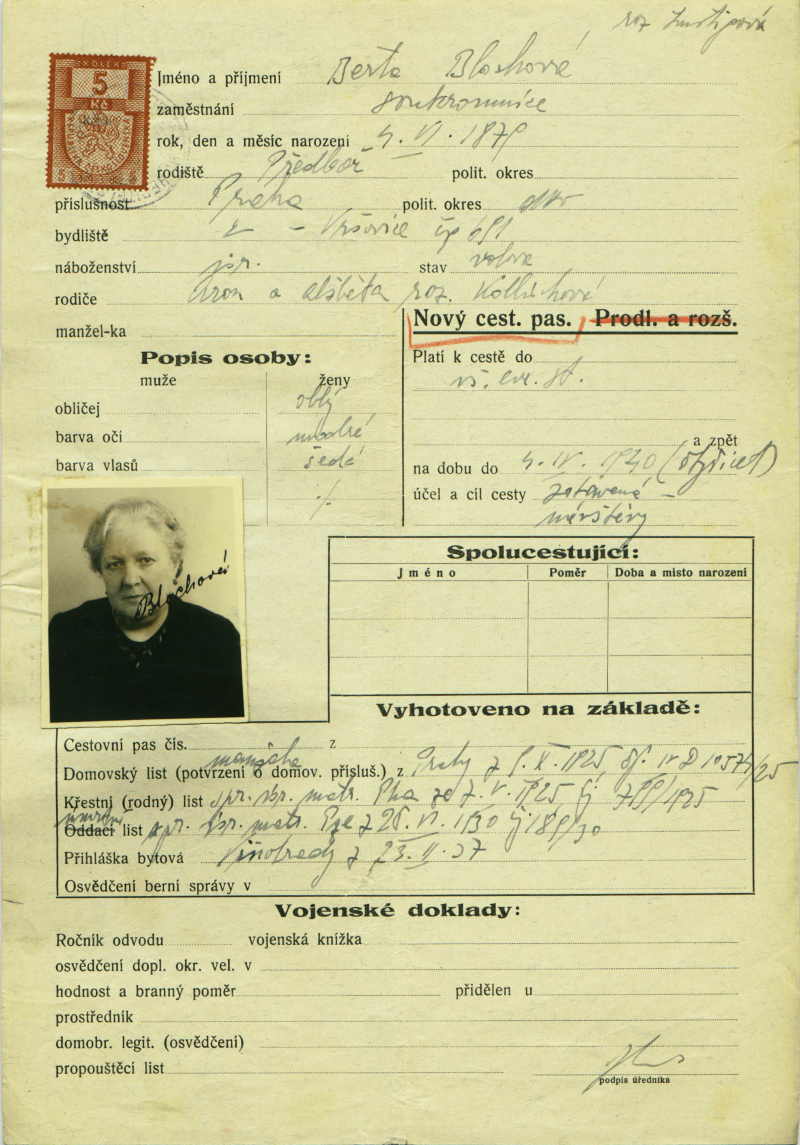 roz
KOLEK
5
Kč
Jméno a příjmení Berta Blochová
zaměstnání soukromnice
rok, den a měsíc narození 4. VI. 1879
rodiště Předbor polit. okres
příslušnost Praha polit. okres dtto
bydliště Vršovice čp 691
náboženství isr. stav vdova
rodiče Aron a Alžběta roz.
manžel-ka
Nový cest. pas. Prodl. a rozš.
Popis osoby:
muže ženy
obličej oblý
barva očí modré
barva vlasů šedé
Platí k cestě do
vš. evr. st.
a zpět
na dobu do 4. IV. 1940
účel a cíl cesty
návštěvy
Blochová
Spolucestující:
Jméno Poměr Doba a místo narození
Vyhotoveno na základě:
Cestovní pas čís. z
Domovský list (potvrzení o domov. přísluš.) z Prahy z X. 1925
Křestní (rodný) list isr. matr. Pha ze 7. V. 1925 čj
Oddací list isr. matr. z 28. VI. 1930 čj 189/30
Přihláška bytová Vinohrady z 23. II. 37
Osvědčení berní správy v
Vojenské doklady:
Ročník odvodu vojenská knížka
osvědčení dopl. okr. vel. v
hodnost a branný poměr přidělen u
prostředník
domobr. legit. (osvědčení)
propouštěcí list
podpis úředníka